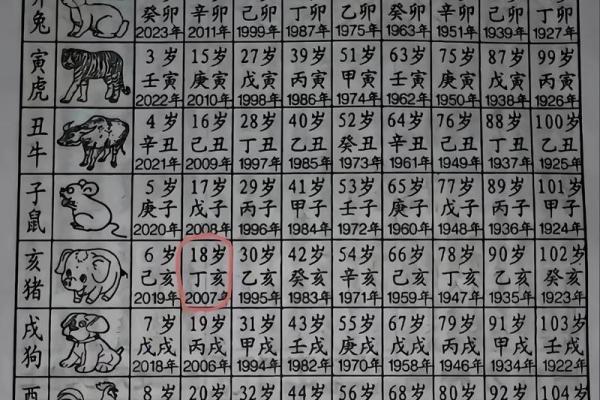 兔 癸卯 辛卯 己卯 丁卯 乙卯 癸卯 辛卯 己卯 丁卯
2023年 2011年 1999年 1987年 1975年 1963年 1951年 1939年 1927年
寅 3岁 15岁 27岁 39岁 51岁 63岁 75岁 87岁 99岁
虎 壬寅 庚寅 戊寅 丙寅 甲寅 壬寅 庚寅 戊寅 丙寅
2022年 2010年 1998年 1986年 1974年 1962年 1950年 1938年 1926年
丑 4岁 16岁 28岁 40岁 52岁 64岁 76岁 88岁 100岁
牛 辛丑 己丑 丁丑 乙丑 癸丑 辛丑 己丑 丁丑 乙丑
2021年 2009年 1997年 1985年 1973年 1961年 1949年 1937年 1925年
子 5岁 17岁 29岁 41岁 53岁 65岁 77岁 89岁 101岁
鼠 庚子 戊子 丙子 甲子 壬子 庚子 戊子 丙子 甲子
2020年 2008年 1996年 1984年 1972年 1960年 1948年 1936年 1924年
亥 6岁 18岁 30岁 42岁 54岁 66岁 78岁 90岁 102岁
猪 己亥 丁亥 乙亥 癸亥 辛亥 己亥 丁亥 乙亥 癸亥
2019年 2007年 1995年 1983年 1971年 1959年 1947年 1935年 1923年
戌 7岁 19岁 31岁 43岁 55岁 67岁 79岁 91岁 103岁
狗 戊戌 丙戌 甲戌 壬戌 庚戌 戊戌 丙戌 甲戌 壬戌
2018年 2006年 1994年 1982年 1970年 1958年 1946年 1934年 1922年
酉 8岁 20岁 32岁 44岁 56岁 68岁 80岁 92岁 104岁